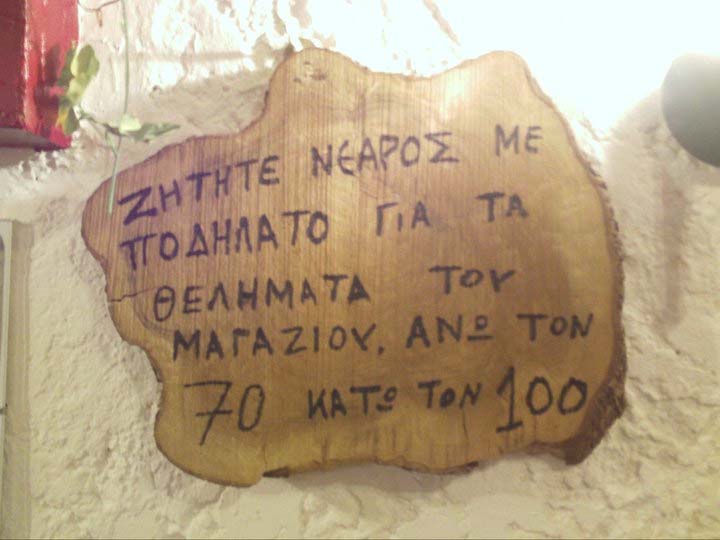 ΖΗΤΗΤΕ ΝΕΑΡΟΣ ΜΕ
ΠΟΔΗΛΑΤΟ ΓΙΑ ΤΑ
ΘΕΛΗΜΑΤΑ ΤΟΥ
ΜΑΓΑΖΙΟΥ, ΑΝΩ ΤΟΝ
70 ΚΑΤΩ ΤΟΝ 100